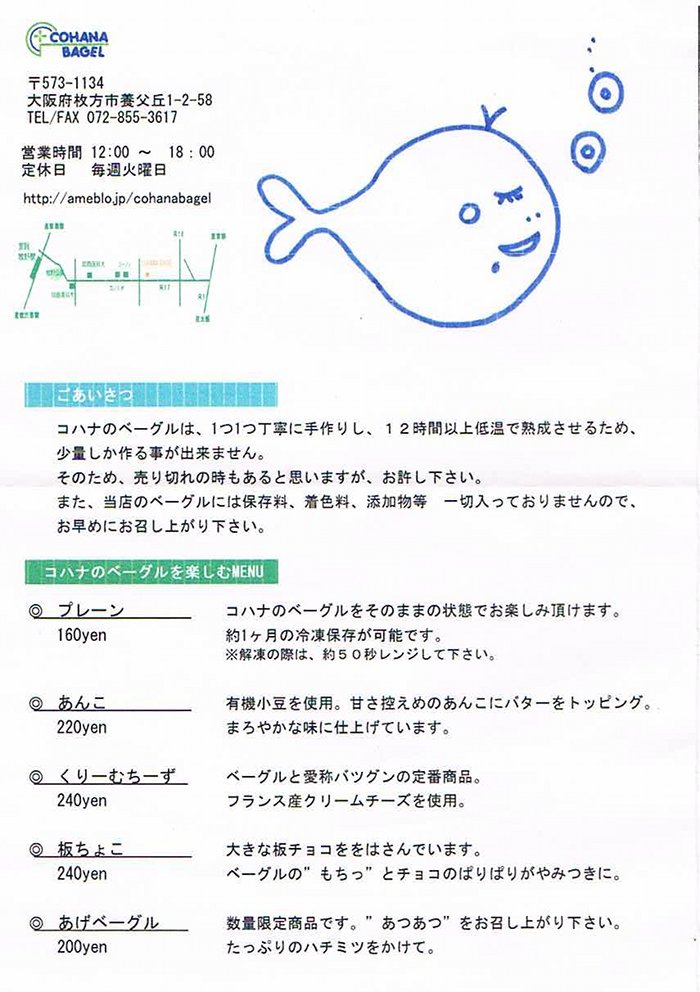 COHANA
BAGEL
〒573-1134
大阪府枚方市養父丘1-2-58
TEL/FAX 072-855-3617
営業時間 12:00 ～ 18:00
定休日 毎週火曜日
http://ameblo.jp/cohanabagel
R17
ごあいさつ
コハナのベーグルは、1つ1つ丁寧に手作りし、１２時間以上低温で熟成させるため、
少量しか作る事が出来ません。
そのため、売り切れの時もあると思いますが、お許し下さい。
また、当店のベーグルには保存料、着色料、添加物等　一切入っておりませんので、
お早めにお召し上がり下さい。
コハナのベーグルを楽しむMENU
◎ プレーン
コハナのベーグルをそのままの状態でお楽しみ頂けます。
160yen
約1ヶ月の冷凍保存が可能です。
※解凍の際は、約５０秒レンジして下さい。
◎ あんこ
有機小豆を使用。甘さ控えめのあんこにバターをトッピング。
220yen
まろやかな味に仕上げています。
◎ くりーむちーず
ベーグルと愛称バツグンの定番商品。
240yen
フランス産クリームチーズを使用。
◎ 板ちょこ
大きな板チョコををはさんでいます。
240yen
ベーグルの”もちっ”とチョコのぱりぱりがやみつきに。
◎ あげベーグル
数量限定商品です。”あつあつ”をお召し上がり下さい。
200yen
たっぷりのハチミツをかけて。